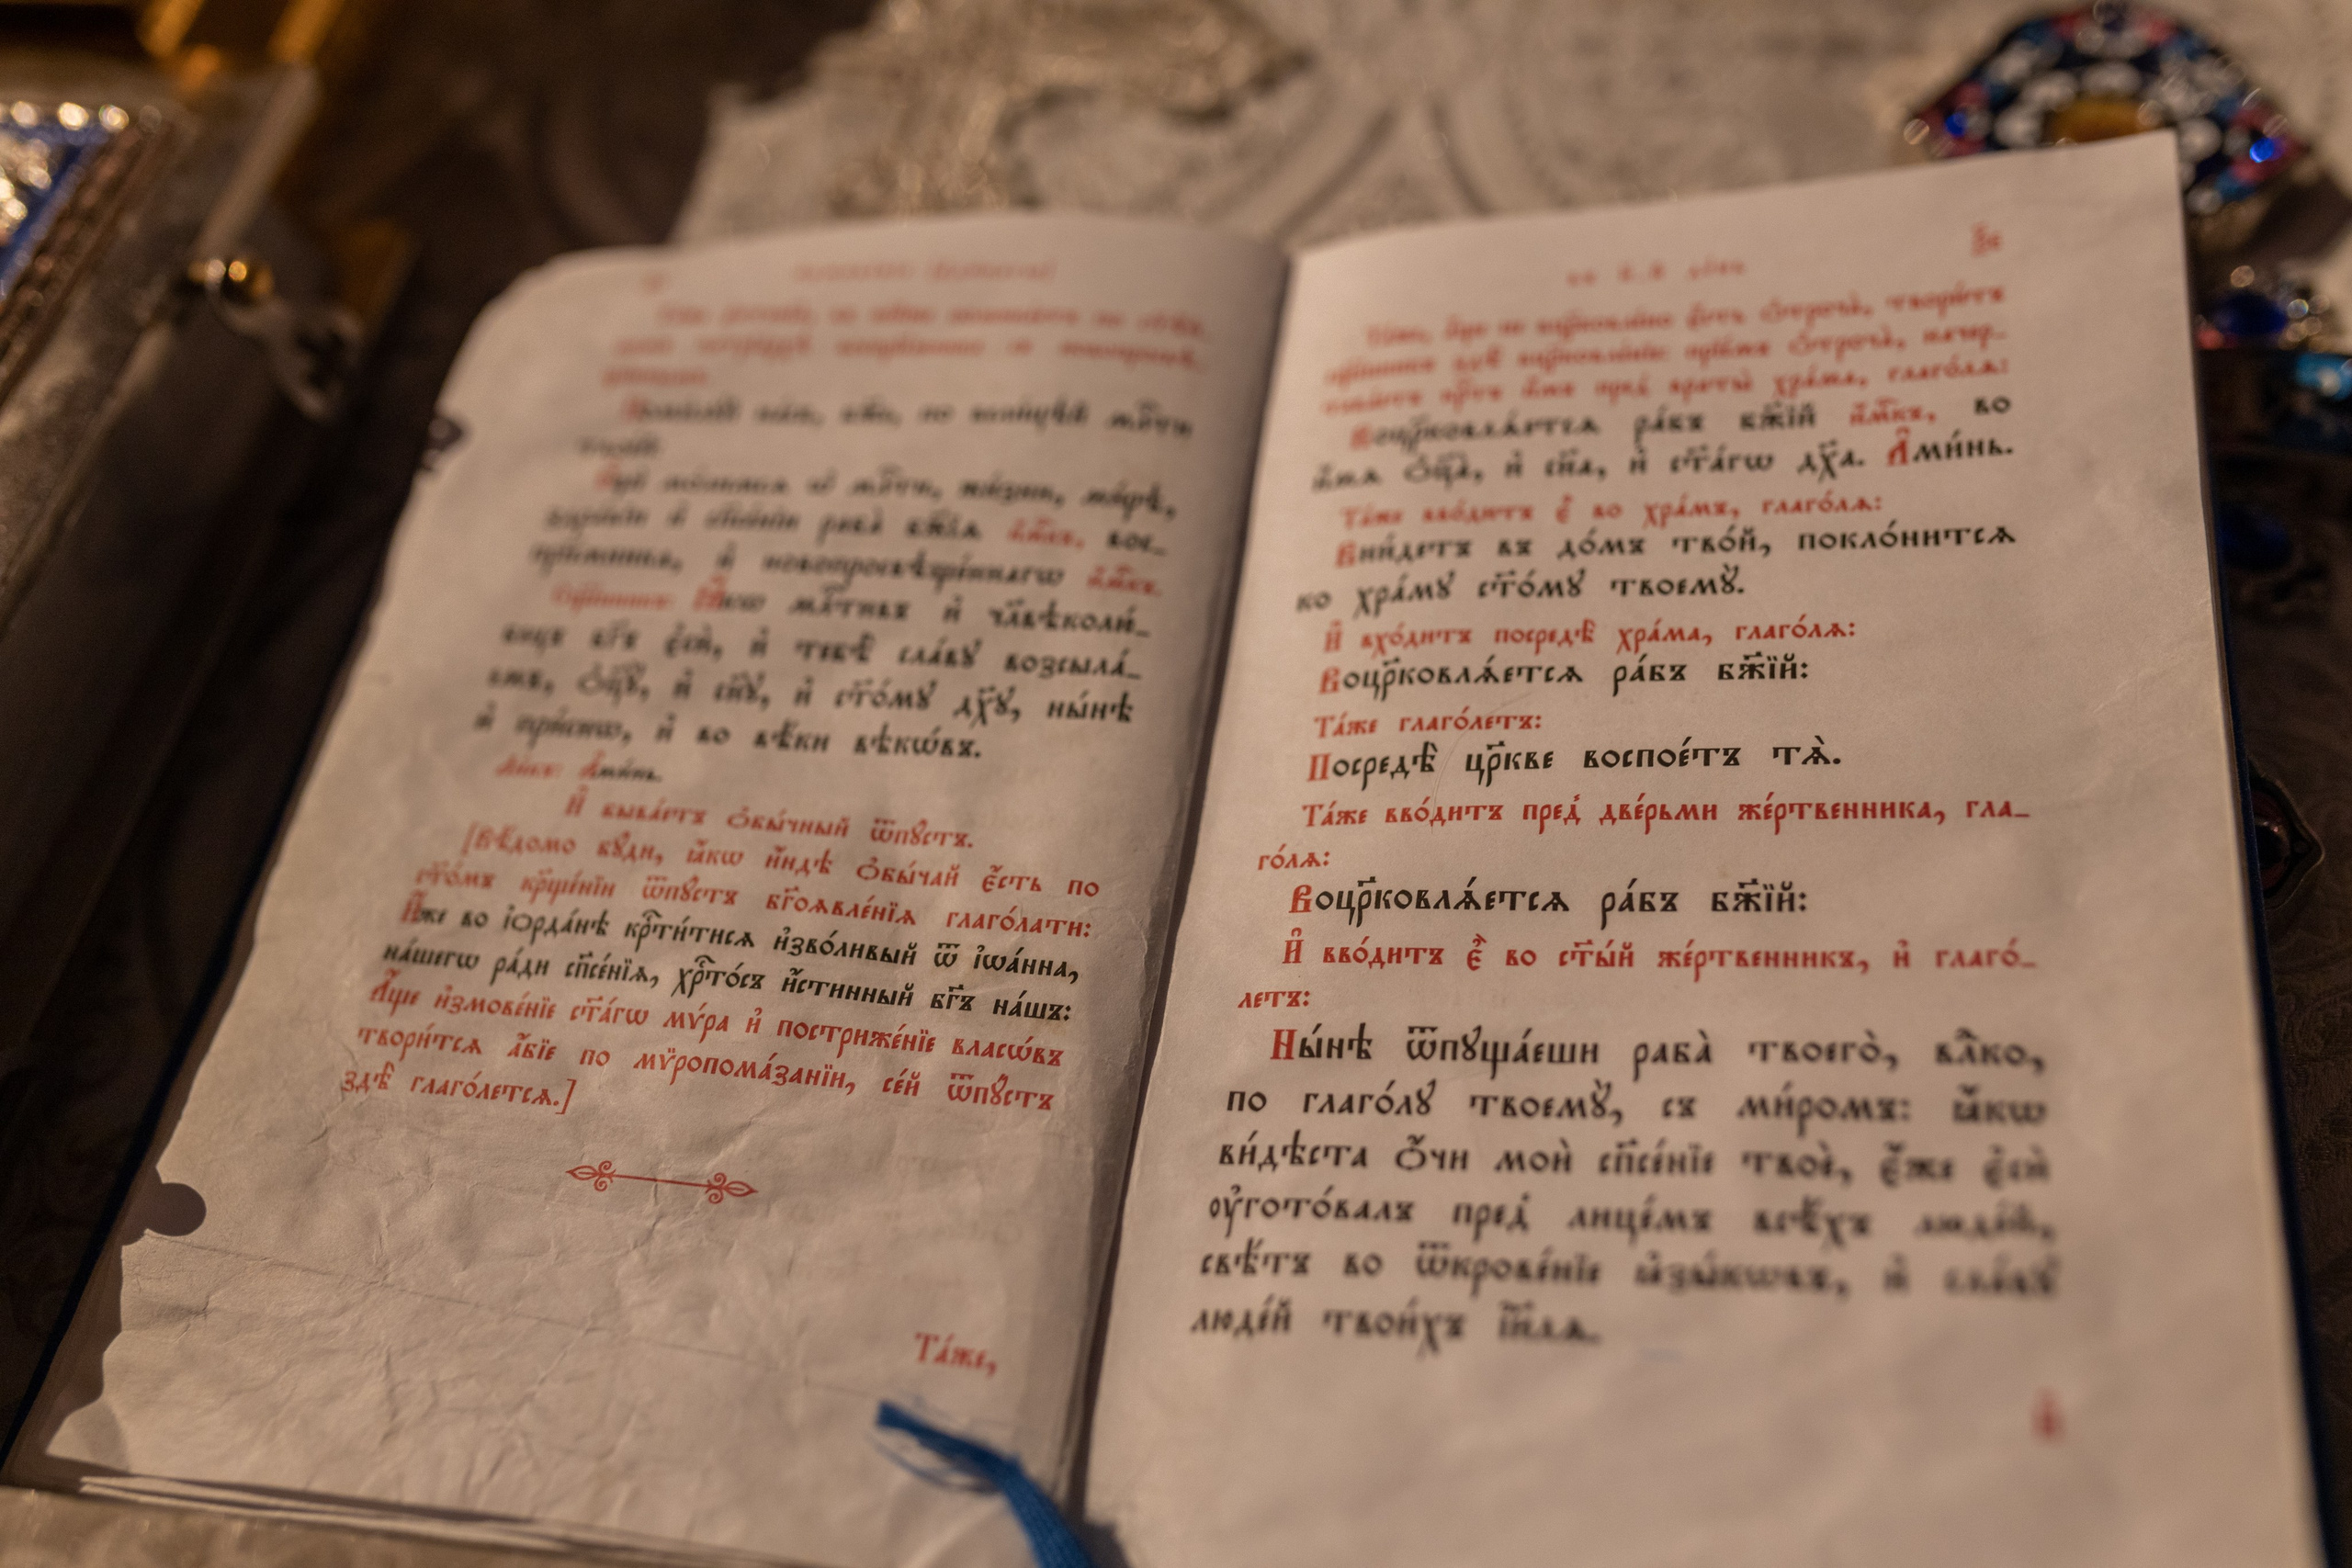 Поми́лꙋй на́съ, бж҃е, по вели́цѣй млⷭ҇ти
твое́й
мо́лимсѧ ѡ҆ млⷭ҇ти, жи́зни, ми́рѣ,
здра́вїи и҆ спⷭ҇нїи раба̀ бж҃їѧ и҆́м҃къ, вос_
прїе́мника, и҆ новопросвѣще́ннагѡ и҆́м҃къ.
Ꙗ҆́кѡ млⷭ҇тивъ и҆ чл҃вѣколю́_
бецъ бг҃ъ є҆сѝ, и҆ тебѣ̀ сла́вꙋ возсыла́_
емъ, ѻ҆ц҃ꙋ̀, и҆ сн҃ꙋ, и҆ ст҃о́мꙋ дх҃ꙋ, ны́нѣ
и҆ при́снѡ, и҆ во вѣ́ки вѣкѡ́въ.
Ли́къ: А҆ми́нь.
И҆ быва́етъ ѻ҆бы́чный ѿпꙋ́стъ.
[Вѣ́домо бꙋ́ди, ꙗ҆́кѡ и҆́ндѣ ѻ҆бы́чай є҆́сть по
ст҃о́мъ крⷭ҇ще́нїи ѿпꙋ́стъ бг҃оѧвле́нїѧ глаго́лати:
И҆́же во і҆ѻрда́нѣ крⷭ҇ти́тисѧ и҆зво́ливый ѿ і҆ѡа́нна,
на́шегѡ ра́ди сп҃се́нїѧ, хрⷭ҇то́съ и҆́стинный бг҃ъ на́шъ:
А҆́ще и҆змове́нїе ст҃а́гѡ мѵ́ра и҆ постриже́нїе власѡ́въ
твори́тсѧ а҆́бїе по мѵ̈ропома́занїи, се́й ѿпꙋ́стъ
здѣ̀ глаго́летсѧ.]
Та́же,
Воцр҃ковлѧ́етсѧ ра́бъ бж҃їй и҆́м҃къ, во
и҆́мѧ ѻ҆ц҃а̀, и҆ сн҃а, и҆ ст҃а́гѡ дх҃а. А҆ми́нь.
Та́же вво́дитъ є҆̀ во хра́мъ, глаго́лѧ:
Вни́детъ въ до́мъ тво́й, покло́нитсѧ
ко хра́мꙋ ст҃о́мꙋ твоемꙋ̀.
И҆ вхо́дитъ посредѣ̀ хра́ма, глаго́лѧ:
Воцр҃ковлѧ́етсѧ ра́бъ бж҃їй:
Та́же глаго́летъ:
Посредѣ̀ цр҃кве воспое́тъ тѧ̀.
Та́же вво́дитъ пред̾ две́рьми же́ртвенника, гла_
го́лѧ:
Воцр҃ковлѧ́етсѧ ра́бъ бж҃їй:
И҆ вво́дитъ є҆̀ во ст҃ы́й же́ртвенникъ, и҆ глаго́_
летъ:
Ны́нѣ ѿпꙋща́еши раба̀ твоего̀, влⷣко,
по глаго́лꙋ твоемꙋ̀, съ ми́ромъ: ꙗ҆́кѡ
ви́дѣста ѻ҆́чи моѝ сп҃се́нїе твоѐ, є҆́же є҆сѝ
ᲂу҆гото́валъ пред̾ лице́мъ всѣ́хъ люде́й,
свѣ́тъ во ѿкрове́нїе ꙗ҆зы́кѡвъ, и҆ сла́вꙋ
люде́й твои́хъ і҆и҃лѧ.